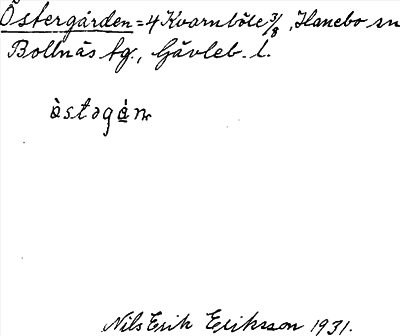 Östergården = 4 Kvarnböle 3/8, Hanebo sn
Bollnäs tg., Gävleb. l.
òstəgá̱n
Nils Erik Eriksson 1931.